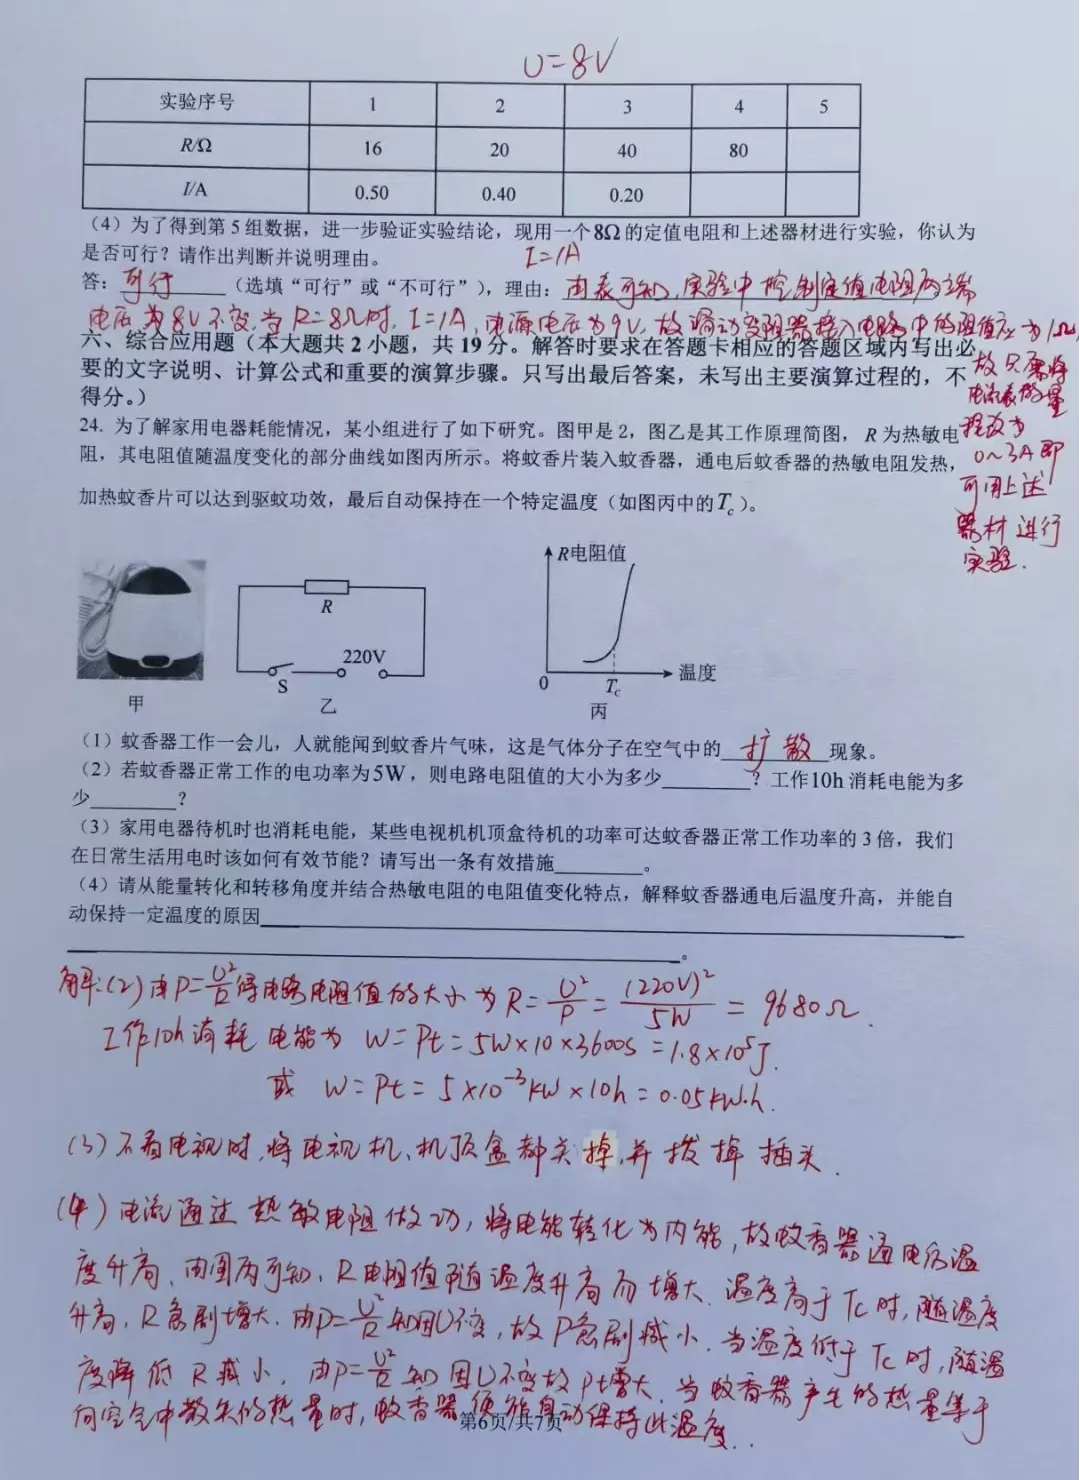 U=8V
实验序号 1 2 3 4 5
R/Ω 16 20 40 80
I/A 0.50 0.40 0.20
（4）为了得到第5组数据，进一步验证实验结论，现用一个8Ω的定值电阻和上述器材进行实验，你认为
是否可行？请作出判断并说明理由。 I=1A
答：可行（选填“可行”或“不可行”），理由：由表可知，实验中控制定值电阻两端
电压为8V不变，当R=8Ω时，I=1A，电源电压为9V，故滑动变阻器接入电路中的阻值应为1Ω，
故只需将
电流表的量
程改为
0~3A即
可用上述
器材进行
实验.
六、综合应用题（本大题共2小题，共19分。解答时要求在答题卡相应的答题区域内写出必
要的文字说明、计算公式和重要的演算步骤。只写出最后答案，未写出主要演算过程的，不
得分。）
24. 为了解家用电器耗能情况，某小组进行了如下研究。图甲是2，图乙是其工作原理简图，R为热敏电
阻，其电阻值随温度变化的部分曲线如图丙所示。将蚊香片装入蚊香器，通电后蚊香器的热敏电阻发热，
加热蚊香片可以达到驱蚊功效，最后自动保持在一个特定温度（如图丙中的Tc）。
R
220V
S
甲
乙
R电阻值
温度
0
Tc
丙
（1）蚊香器工作一会儿，人就能闻到蚊香片气味，这是气体分子在空气中的扩散现象。
（2）若蚊香器正常工作的电功率为5W，则电路电阻值的大小为多少________？工作10h消耗电能为多
少________？
（3）家用电器待机时也消耗电能，某些电视机机顶盒待机的功率可达蚊香器正常工作功率的3倍，我们
在日常生活用电时该如何有效节能？请写出一条有效措施________。
（4）请从能量转化和转移角度并结合热敏电阻的电阻值变化特点，解释蚊香器通电后温度升高，并能自
动保持一定温度的原因________
________。
解：(2) 由P=U²/R得电路电阻值的大小为R=U²/P=(220V)²/5W=9680Ω.
工作10h消耗电能为 W=Pt=5W×10×3600s=1.8×10⁵J.
或 W=Pt=5×10⁻³kW×10h=0.05kW·h.
(3) 不看电视时，将电视机、机顶盒都关掉，并拔掉插头.
(4) 电流通过热敏电阻做功，将电能转化为内能，故蚊香器通电后温
度升高，由图丙可知，R电阻值随温度升高而增大.温度高于Tc时，随温度
升高，R急剧增大.由P=U²/R知因U不变，故P急剧减小.当温度低于Tc时，随温
度降低R减小，由P=U²/R知因U不变故P增大.当蚊香器产生的热量等于
向空气中散失的热量时，蚊香器便能自动保持此温度.
第6页/共7页